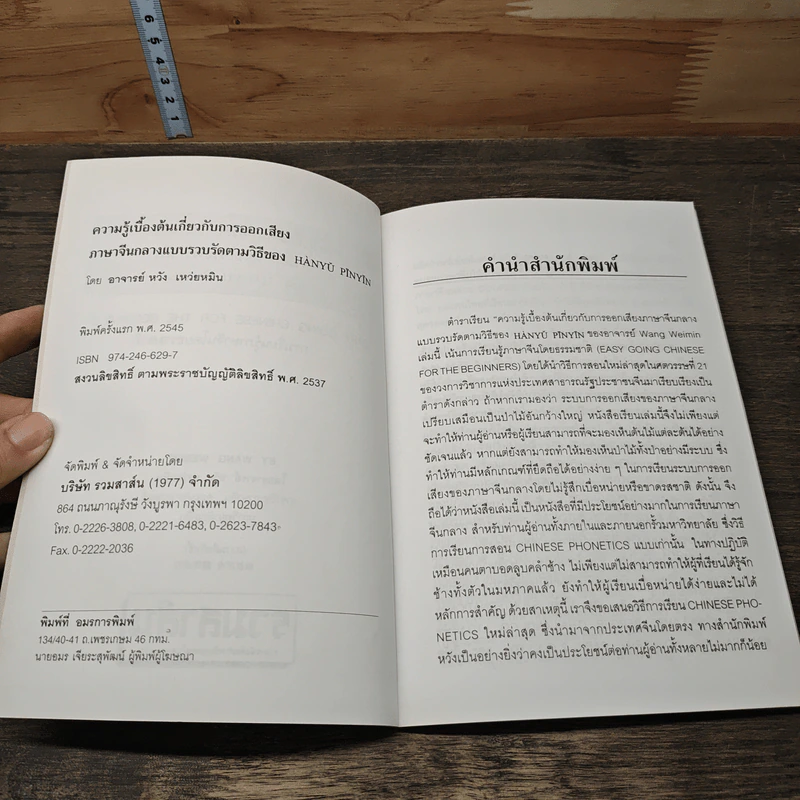 6 5 4 3 2 1
ความรู้เบื้องต้นเกี่ยวกับการออกเสียง
ภาษาจีนกลางแบบรวบรัดตามวิธีของ HÀNYŬ PĪNYĪN
โดย อาจารย์ หวัง เหว่ยหมิน
พิมพ์ครั้งแรก พ.ศ. 2545
ISBN 974-246-629-7
สงวนลิขสิทธิ์ ตามพระราชบัญญัติลิขสิทธิ์ พ.ศ. 2537
จัดพิมพ์ & จัดจำหน่ายโดย
บริษัท รวมสาส์น (1977) จำกัด
864 ถนนภาณุรังษี วังบูรพา กรุงเทพฯ 10200
โทร. 0-2226-3808, 0-2221-6483, 0-2623-7843
Fax. 0-2222-2036
พิมพ์ที่ อมรการพิมพ์
134/40-41 ถ.เพชรเกษม 46 กทม.
นายอมร เจียระสุพัฒน์ ผู้พิมพ์ผู้โฆษณา
คำนำสำนักพิมพ์
ตำราเรียน "ความรู้เบื้องต้นเกี่ยวกับการออกเสียงภาษาจีนกลาง
แบบรวบรัดตามวิธีของ HÀNYŬ PĪNYĪN ของอาจารย์ Wang Weimin
เล่มนี้ เน้นการเรียนรู้ภาษาจีนโดยธรรมชาติ (EASY GOING CHINESE
FOR THE BEGINNERS) โดยได้นำวิธีการสอนใหม่ล่าสุดในศตวรรษที่ 21
ของวงการวิชาการแห่งประเทศสาธารณรัฐประชาชนจีนมาเรียบเรียงเป็น
ตำราดังกล่าว ถ้าหากเรามองว่า ระบบการออกเสียงของภาษาจีนกลาง
เปรียบเสมือนเป็นป่าไม้อันกว้างใหญ่ หนังสือเรียนเล่มนี้จึงไม่เพียงแต่
จะทำให้ท่านผู้อ่านหรือผู้เรียนสามารถที่จะมองเห็นต้นไม้แต่ละต้นได้อย่าง
ชัดเจนแล้ว หากแต่ยังสามารถทำให้มองเห็นป่าไม้ทั้งป่าอย่างมีระบบ ซึ่ง
ทำให้ท่านมีหลักเกณฑ์ที่ยึดถือได้อย่างง่าย ๆ ในการเรียนระบบการออก
เสียงของภาษาจีนกลางโดยไม่รู้สึกเบื่อหน่ายหรือขาดรสชาติ ดังนั้น จึง
ถือได้ว่าหนังสือเล่มนี้ เป็นหนังสือที่มีประโยชน์อย่างมากในการเรียนภาษา
จีนกลาง สำหรับท่านผู้อ่านทั้งภายในและภายนอกรั้วมหาวิทยาลัย ซึ่งวิธี
การเรียนการสอน CHINESE PHONETICS แบบเก่านั้น ในทางปฏิบัติ
เหมือนคนตาบอดลูบคลำช้าง ไม่เพียงแต่ไม่สามารถทำให้ผู้ที่เรียนได้รู้จัก
ช้างทั้งตัวในมหภาคแล้ว ยังทำให้ผู้เรียนเบื่อหน่ายได้ง่ายและไม่ได้
หลักการสำคัญ ด้วยสาเหตุนี้ เราจึงขอเสนอวิธีการเรียน CHINESE PHO-
NETICS ใหม่ล่าสุด ซึ่งนำมาจากประเทศจีนโดยตรง ทางสำนักพิมพ์
หวังเป็นอย่างยิ่งว่าคงเป็นประโยชน์ต่อท่านผู้อ่านทั้งหลายไม่มากก็น้อย